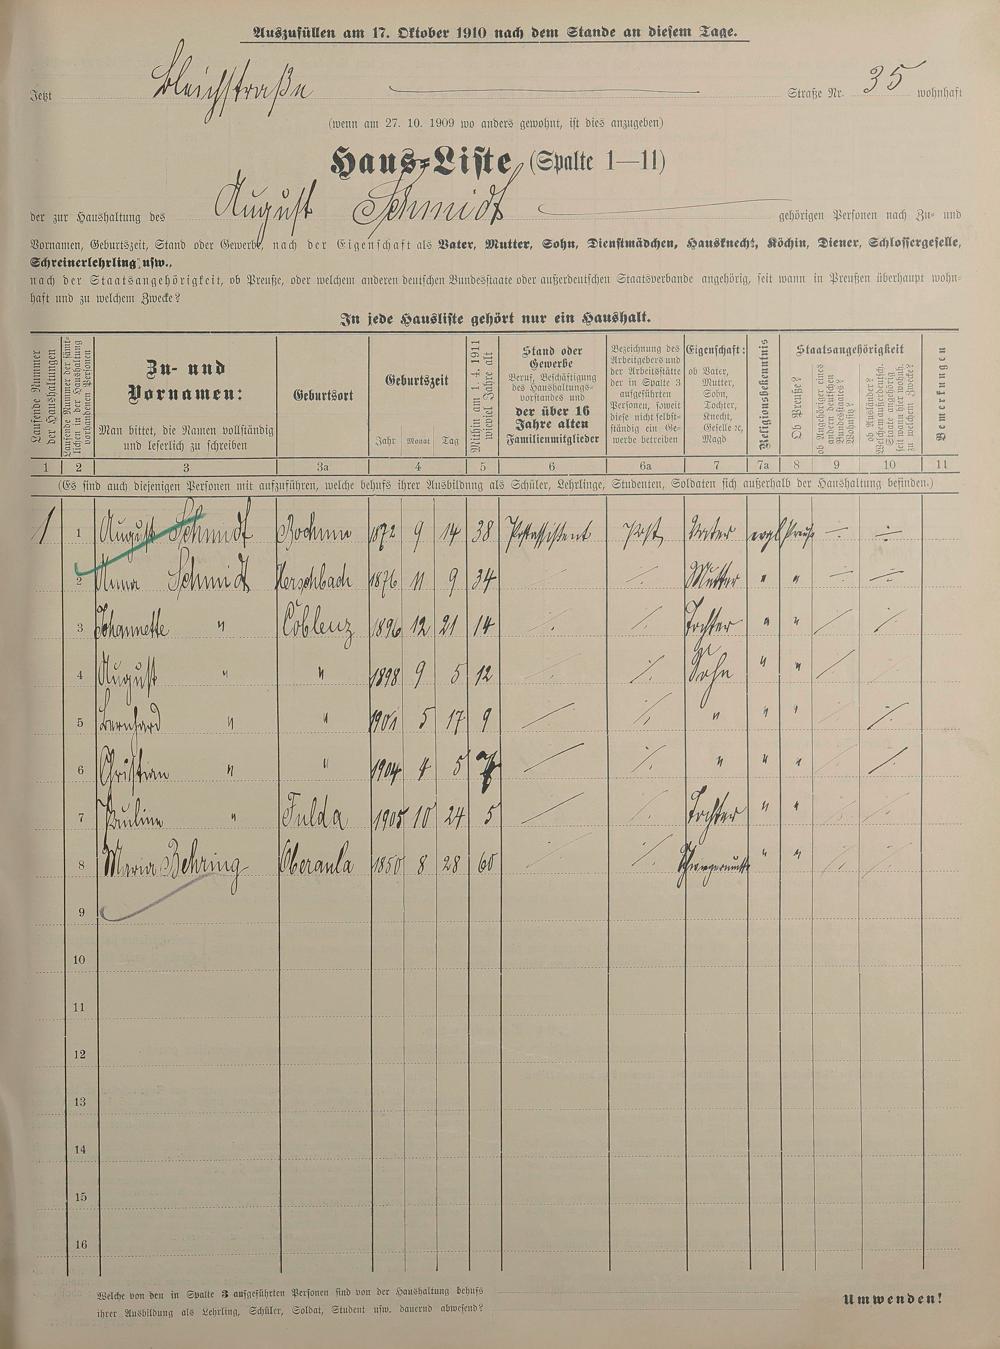 Auszufüllen am 17. Oktober 1910 nach dem Stande an diesem Tage.
Jetzt Bleichstraße Straße Nr. 35 wohnhaft
(wenn am 27. 10. 1909 wo anders gewohnt, ist dies anzugeben)
Haus-Liste (Spalte 1—11)
der zur Haushaltung des August Schmidt gehörigen Personen nach Zu- und
Vornamen, Geburtszeit, Stand oder Gewerbe, nach der Eigenschaft als Vater, Mutter, Sohn, Dienstmädchen, Hausknecht, Köchin, Diener, Schlossergeselle,
Schreinerlehrling usw.,
nach der Staatsangehörigkeit, ob Preuße, oder welchem anderen deutschen Bundesstaate oder außerdeutschen Staatsverbande angehörig, seit wann in Preußen überhaupt wohn-
haft und zu welchem Zwecke?
In jede Hausliste gehört nur ein Haushalt.
Laufende Nummer der Haushaltungen
Laufende Nummer der sämt-
lichen in der Haushaltung
vorhandenen Personen
Zu- und
Vornamen:
Man bittet, die Namen vollständig
und leserlich zu schreiben
Geburtsort
Geburtszeit
Jahr Monat Tag
Mithin am 1. 4. 1911
wieviel Jahre alt
Stand oder
Gewerbe
Beruf, Beschäftigung
des Haushaltungs-
vorstandes und
der über 16
Jahre alten
Familienmitglieder
Bezeichnung des
Arbeitgebers und
der Arbeitsstätte
der in Spalte 3
aufgeführten
Personen, soweit
diese nicht selbst-
ständig ein Ge-
werbe betreiben
Eigenschaft:
ob Vater,
Mutter,
Sohn,
Tochter,
Knecht,
Geselle ꝛc,
Magd
Religionsbekenntnis
Staatsangehörigkeit
Ob Preuße?
ob Angehöriger eines
anderen deutschen
Bundesstaates?
Wohnsitz?
ob Ausländer?
Welchem außerdeutsch.
Staate angehörig
seit wann hier wohnh.
zu welchem Zwecke?
Bemerkungen
1 2 3 3a 4 5 6 6a 7 7a 8 9 10 11
(Es sind auch diejenigen Personen mit aufzuführen, welche behufs ihrer Ausbildung als Schüler, Lehrlinge, Studenten, Soldaten sich außerhalb der Haushaltung befinden.)
1 1 August Schmidt Bochum 1872 9 14 38 Postassistent Post Vater evgl Preuß ÷ ÷
2 Anna Schmidt Herschbach 1876 11 9 34 ⁒ ⁒ Mutter " " ÷ ÷
3 Johannette " Coblenz 1896 12 21 14 ⁒ ⁒ Tochter " " / ⁒
4 August " " 1898 9 5 12 ⁒ ⁒ Sohn " " / ⁒
5 Bernhard " " 1901 5 17 9 ⁒ ⁒ " " " ⁒ ⁒
6 Christian " " 1904 4 5 ⁒ ⁒ " " " ⁒ ⁒
7 Pauline " Fulda 1905 10 24 5 ⁒ ⁒ Tochter " " ⁒ ⁒
8 Maria Behring Oberaula 1850 8 28 60 ⁒ ⁒ Schwiegermutter " " ⁒ ⁒
9
10
11
12
13
14
15
16
Welche von den in Spalte 3 aufgeführten Personen sind von der Haushaltung behufs
ihrer Ausbildung als Lehrling, Schüler, Soldat, Student usw. dauernd abwesend?
Umwenden!